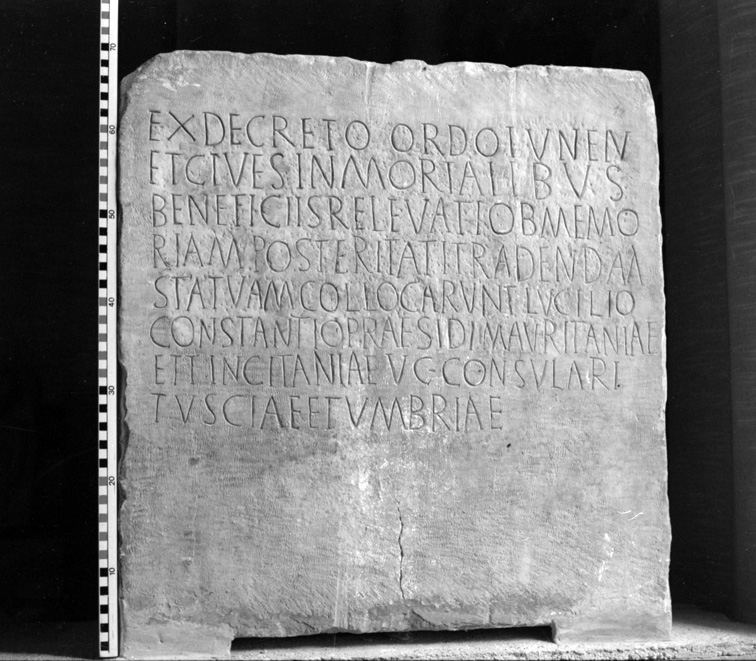 EX DECRETO ORDO LVNEN
ET CIVES INMORTALIBVS
BENEFICIIS RELEVATI OB MEMO
RIAM POSTERITATI TRADENDAM
STATVAM COLLOCARVNT LVCILIO
CONSTANTIO PRAESIDI MAVRITANIAE
ET TINCITANIAE VC CONSVLARI
TVSCIAE ET VMBRIAE
70
60
50
40
30
20
10